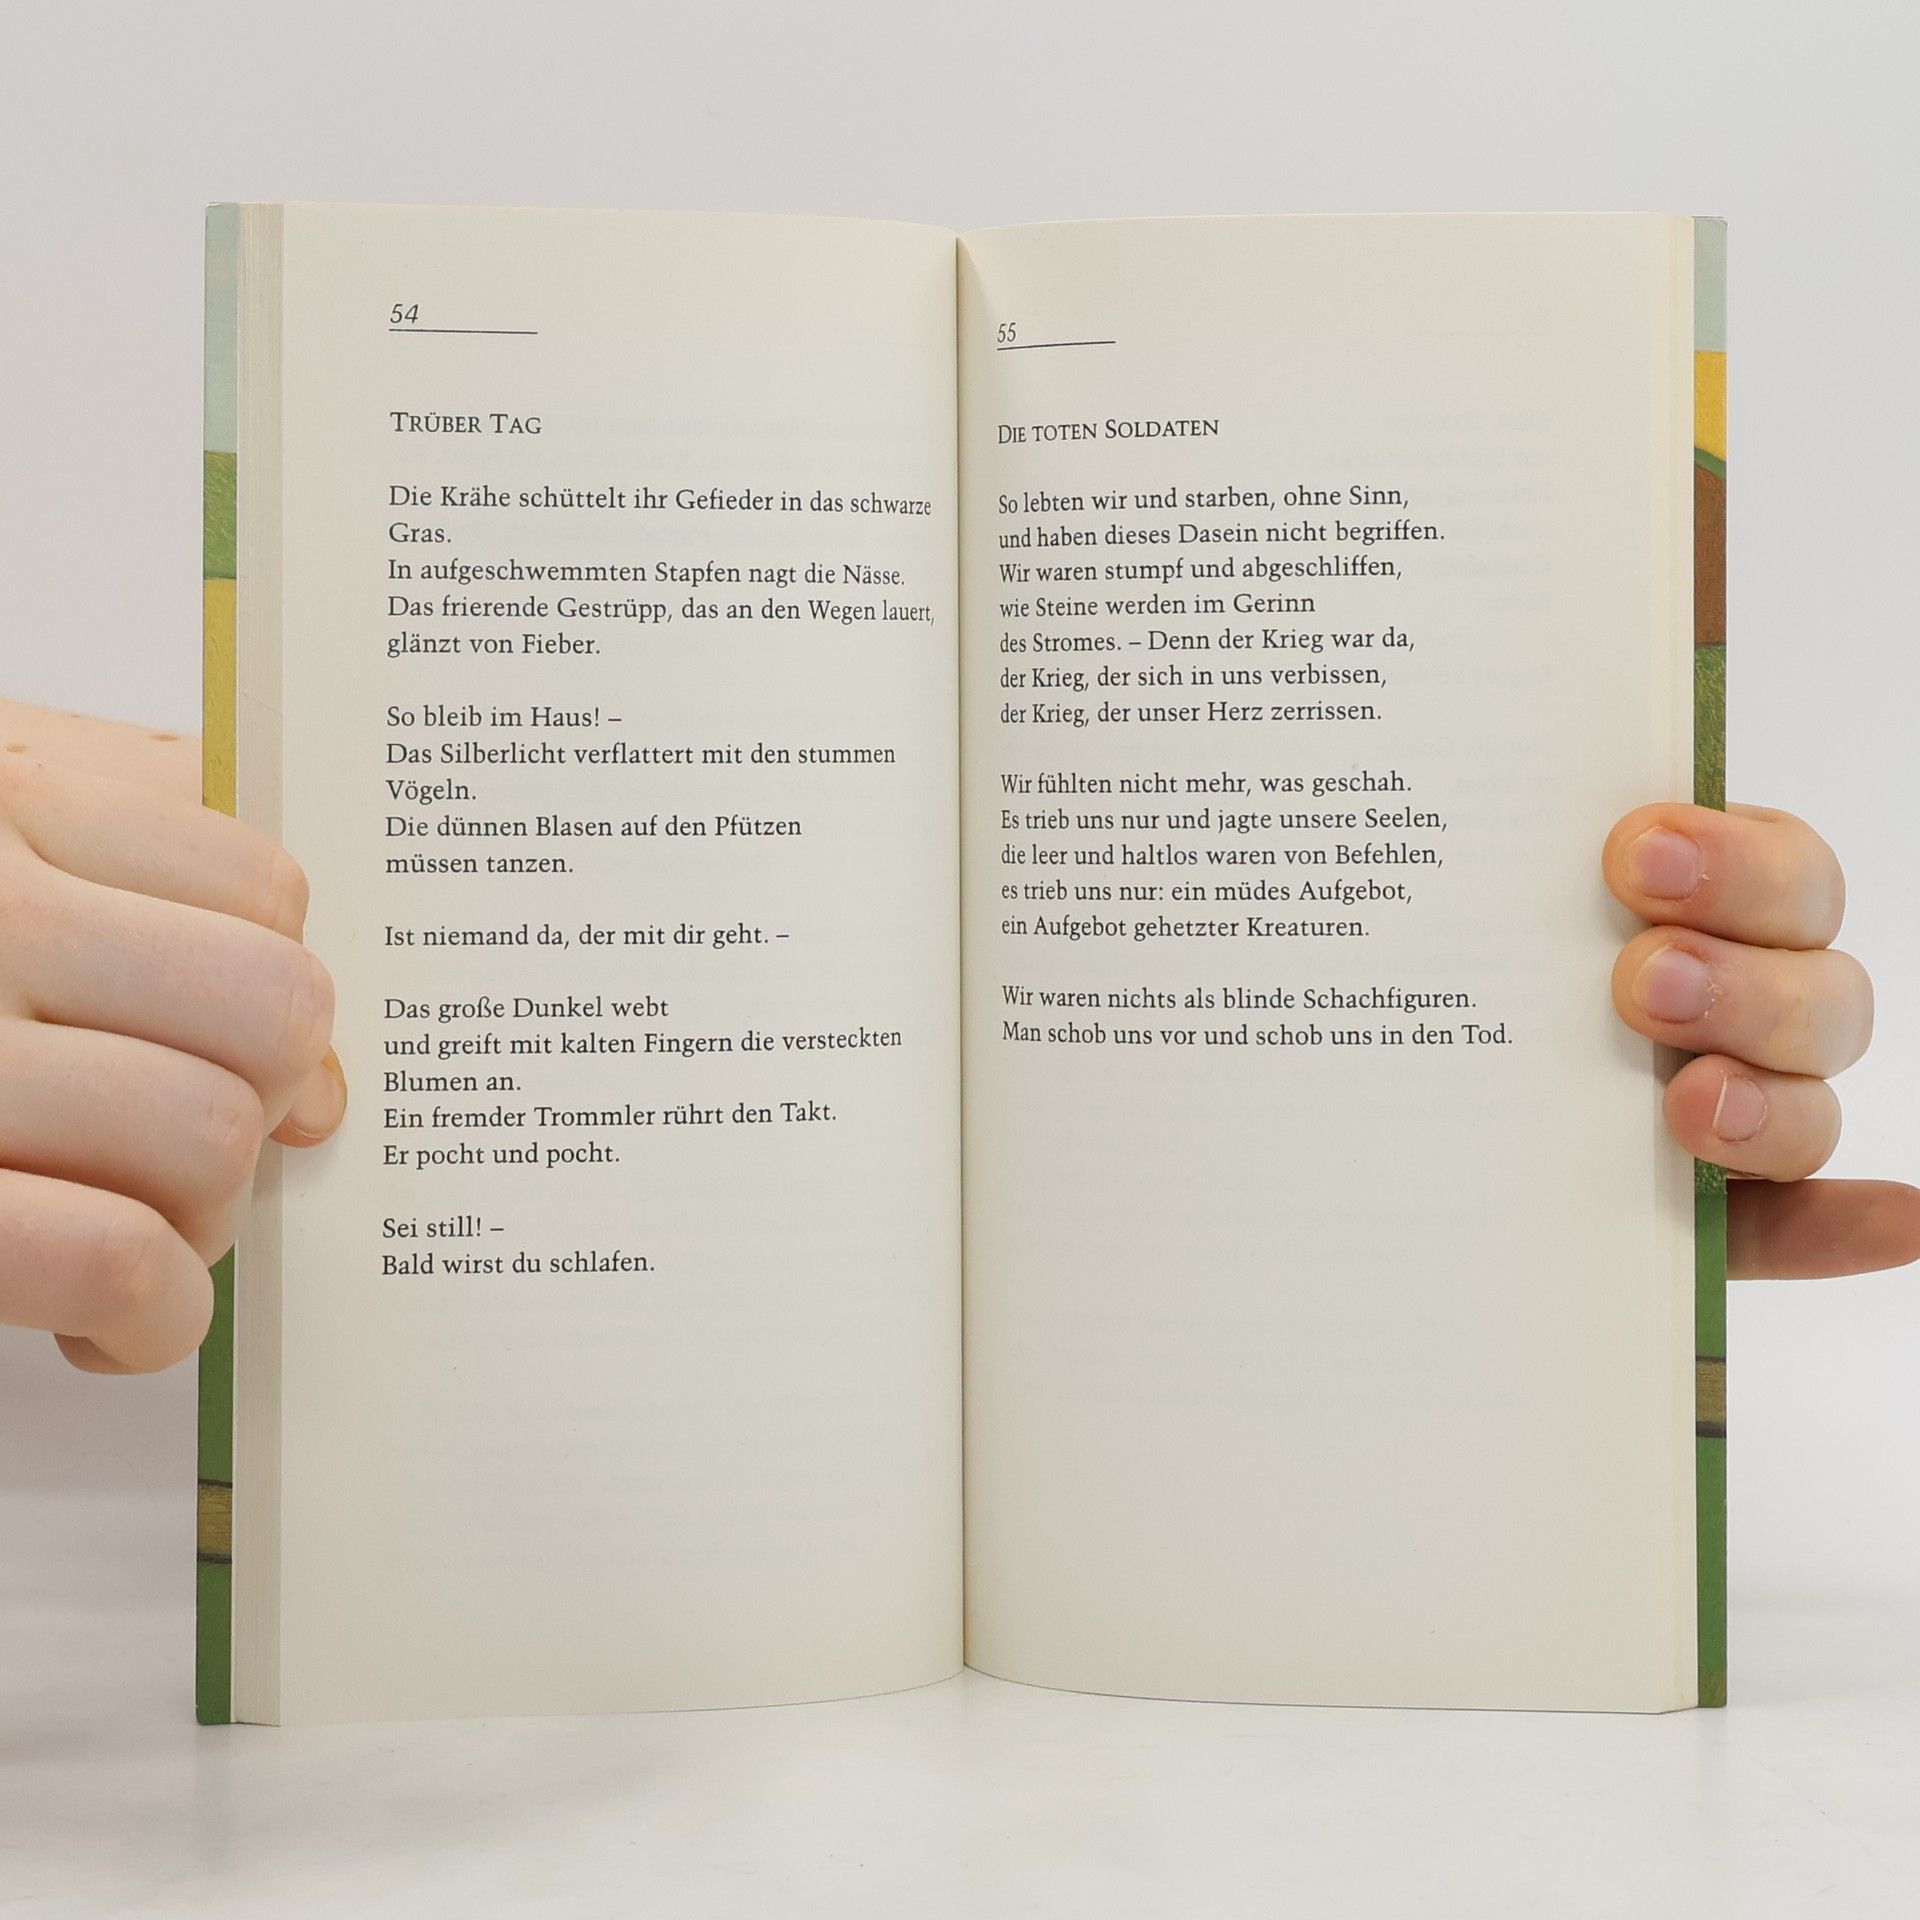 54
TRÜBER TAG
Die Krähe schüttelt ihr Gefieder in das schwarze
Gras.
In aufgeschwemmten Stapfen nagt die Nässe.
Das frierende Gestrüpp, das an den Wegen lauert,
glänzt von Fieber.
So bleib im Haus! –
Das Silberlicht verflattert mit den stummen
Vögeln.
Die dünnen Blasen auf den Pfützen
müssen tanzen.
Ist niemand da, der mit dir geht. –
Das große Dunkel webt
und greift mit kalten Fingern die versteckten
Blumen an.
Ein fremder Trommler rührt den Takt.
Er pocht und pocht.
Sei still! –
Bald wirst du schlafen.
55
DIE TOTEN SOLDATEN
So lebten wir und starben, ohne Sinn,
und haben dieses Dasein nicht begriffen.
Wir waren stumpf und abgeschliffen,
wie Steine werden im Gerinn
des Stromes. – Denn der Krieg war da,
der Krieg, der sich in uns verbissen,
der Krieg, der unser Herz zerrissen.
Wir fühlten nicht mehr, was geschah.
Es trieb uns nur und jagte unsere Seelen,
die leer und haltlos waren von Befehlen,
es trieb uns nur: ein müdes Aufgebot,
ein Aufgebot gehetzter Kreaturen.
Wir waren nichts als blinde Schachfiguren.
Man schob uns vor und schob uns in den Tod.